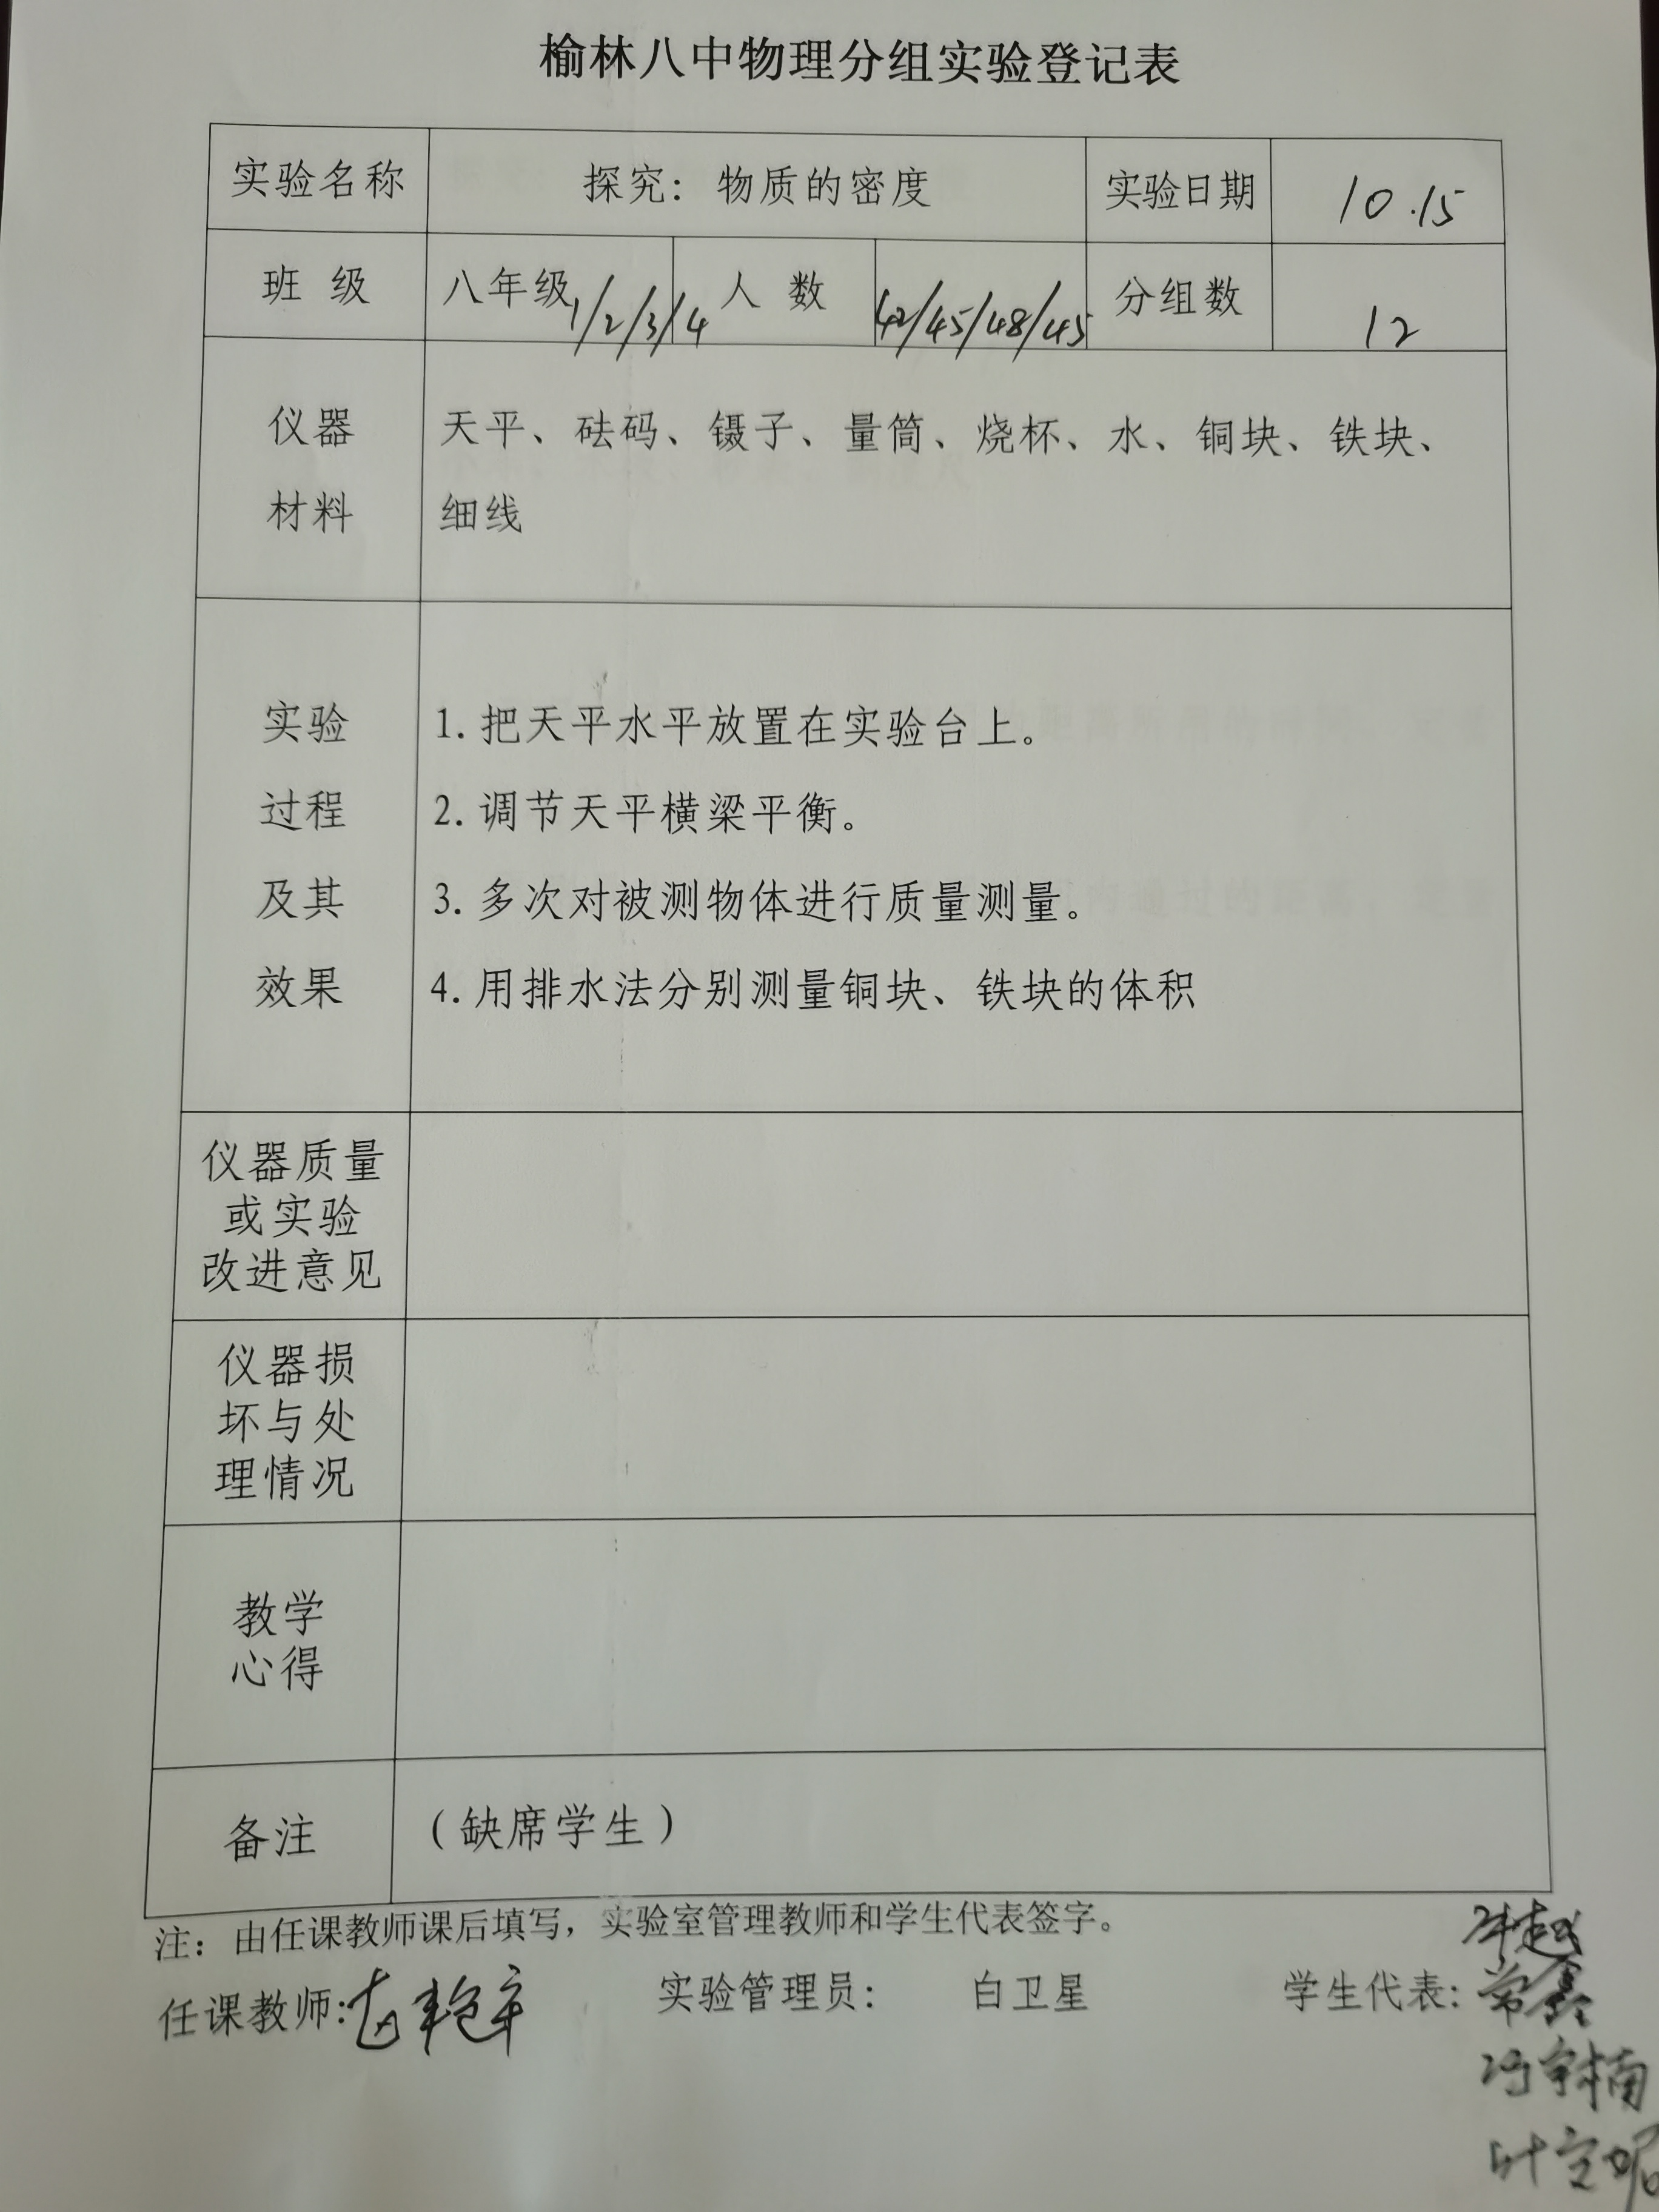 榆林八中物理分组实验登记表
实验名称 探究：物质的密度 实验日期 10.15
班 级 八年级1/2/3/4 人 数 42/45/48/45 分组数 12
仪器 天平、砝码、镊子、量筒、烧杯、水、铜块、铁块、
材料 细线
实验 1.把天平水平放置在实验台上。
过程 2.调节天平横梁平衡。
及其 3.多次对被测物体进行质量测量。
效果 4.用排水法分别测量铜块、铁块的体积
仪器质量
或实验
改进意见
仪器损
坏与处
理情况
教学
心得
备注 （缺席学生）
注：由任课教师课后填写，实验室管理教师和学生代表签字。
任课教师: 实验管理员： 白卫星 学生代表: 常鑫